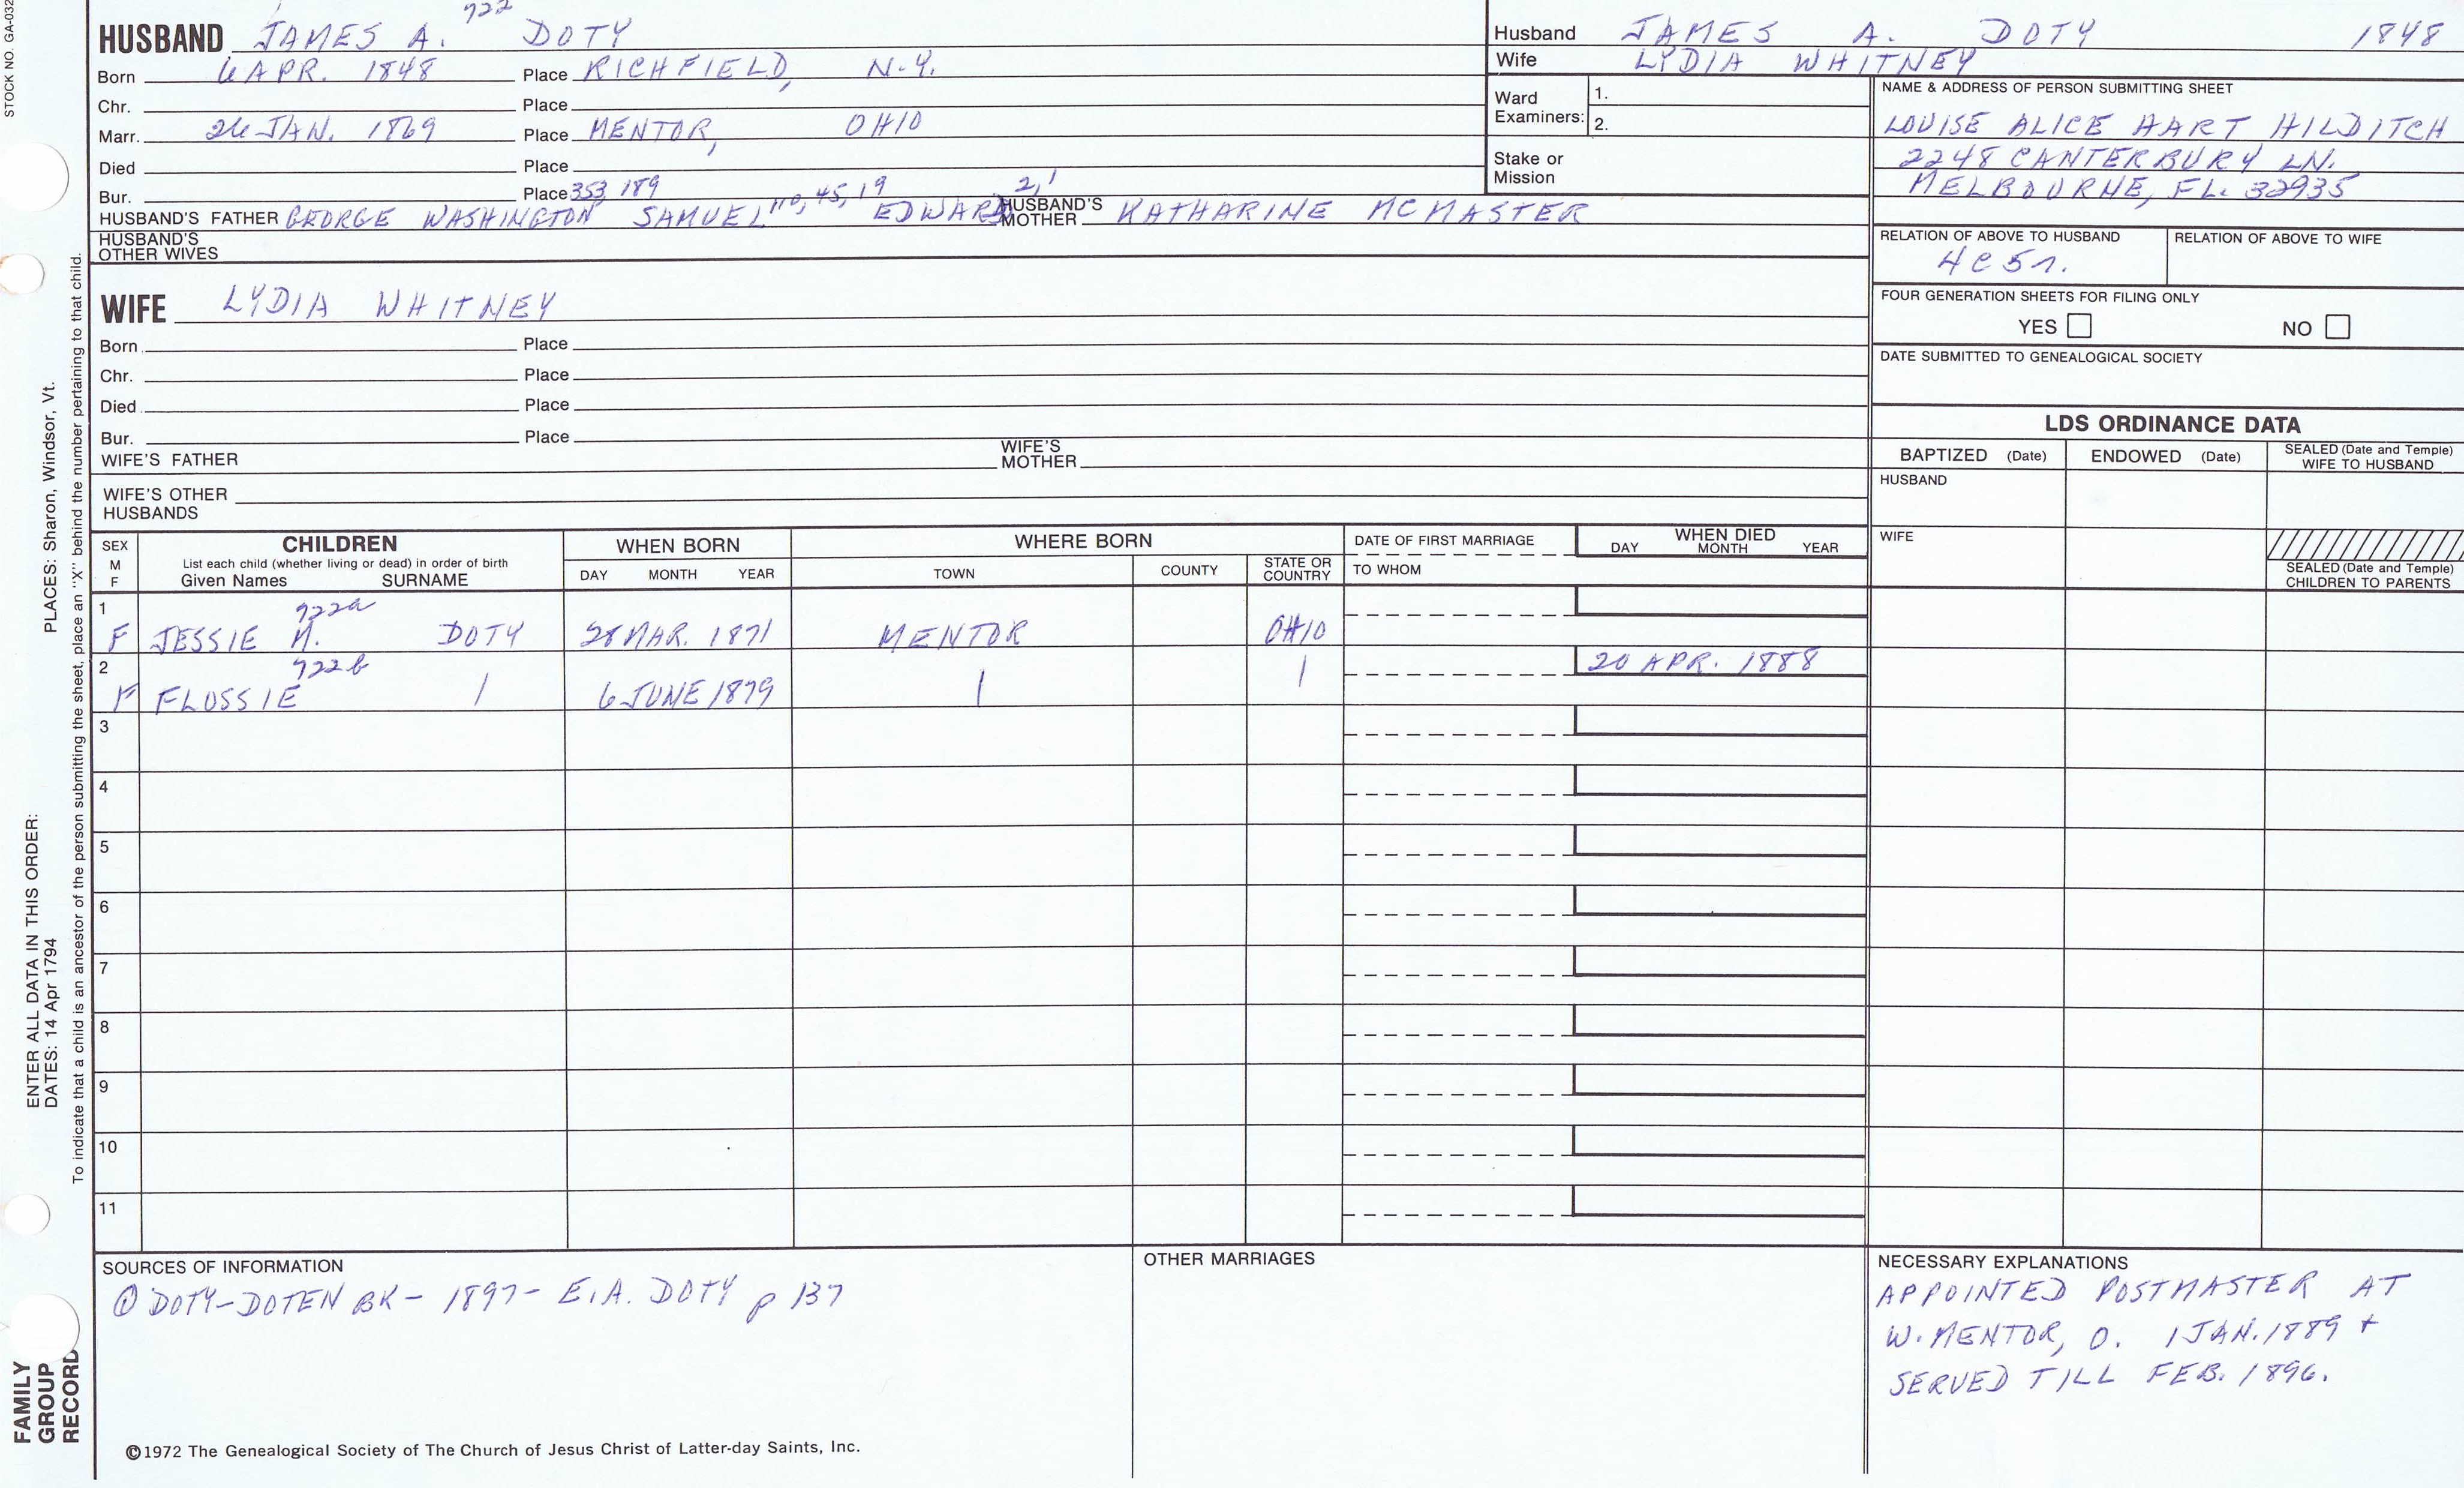 STOCK NO. GA-032
922
HUSBAND JAMES A. DOTY
Born 6 APR. 1848 Place RICHFIELD, N.Y.
Chr. Place
Marr. 26 JAN. 1869 Place MENTOR, OHIO
Died Place
Bur. Place
353 189 110, 45, 19 2, 1
HUSBAND'S FATHER GEORGE WASHINGTON SAMUEL EDWARD HUSBAND'S MOTHER KATHARINE MCMASTER
HUSBAND'S OTHER WIVES
WIFE LYDIA WHITNEY
Born Place
Chr. Place
Died Place
Bur. Place
WIFE'S FATHER WIFE'S MOTHER
WIFE'S OTHER HUSBANDS
Husband JAMES A. DOTY 1848
Wife LYDIA WHITNEY
Ward Examiners: 1.
2.
Stake or Mission
NAME & ADDRESS OF PERSON SUBMITTING SHEET
LOUISE ALICE HART HILDITCH
2248 CANTERBURY LN.
MELBOURNE, FL. 32935
RELATION OF ABOVE TO HUSBAND RELATION OF ABOVE TO WIFE
4C5r.
FOUR GENERATION SHEETS FOR FILING ONLY
YES NO
DATE SUBMITTED TO GENEALOGICAL SOCIETY
LDS ORDINANCE DATA
BAPTIZED (Date) ENDOWED (Date) SEALED (Date and Temple) WIFE TO HUSBAND
HUSBAND
WIFE
SEALED (Date and Temple) CHILDREN TO PARENTS
SEX M F
CHILDREN
List each child (whether living or dead) in order of birth
Given Names SURNAME
WHEN BORN
DAY MONTH YEAR
WHERE BORN
TOWN COUNTY STATE OR COUNTRY
DATE OF FIRST MARRIAGE
TO WHOM
WHEN DIED
DAY MONTH YEAR
1 922a
F JESSIE M. DOTY 28 MAR. 1871 MENTOR OHIO
2 922b 20 APR. 1888
F FLOSSIE 6 JUNE 1879
3
4
5
6
7
8
9
10
11
SOURCES OF INFORMATION
① DOTY-DOTEN BK - 1897 - E.A. DOTY p 137
OTHER MARRIAGES
NECESSARY EXPLANATIONS
APPOINTED POSTMASTER AT
W. MENTOR, O. 1 JAN. 1889 +
SERVED TILL FEB. 1896.
©1972 The Genealogical Society of The Church of Jesus Christ of Latter-day Saints, Inc.
ENTER ALL DATA IN THIS ORDER:
DATES: 14 Apr 1794 PLACES: Sharon, Windsor, Vt.
To indicate that a child is an ancestor of the person submitting the sheet, place an "X" behind the number pertaining to that child.
FAMILY
GROUP
RECORD